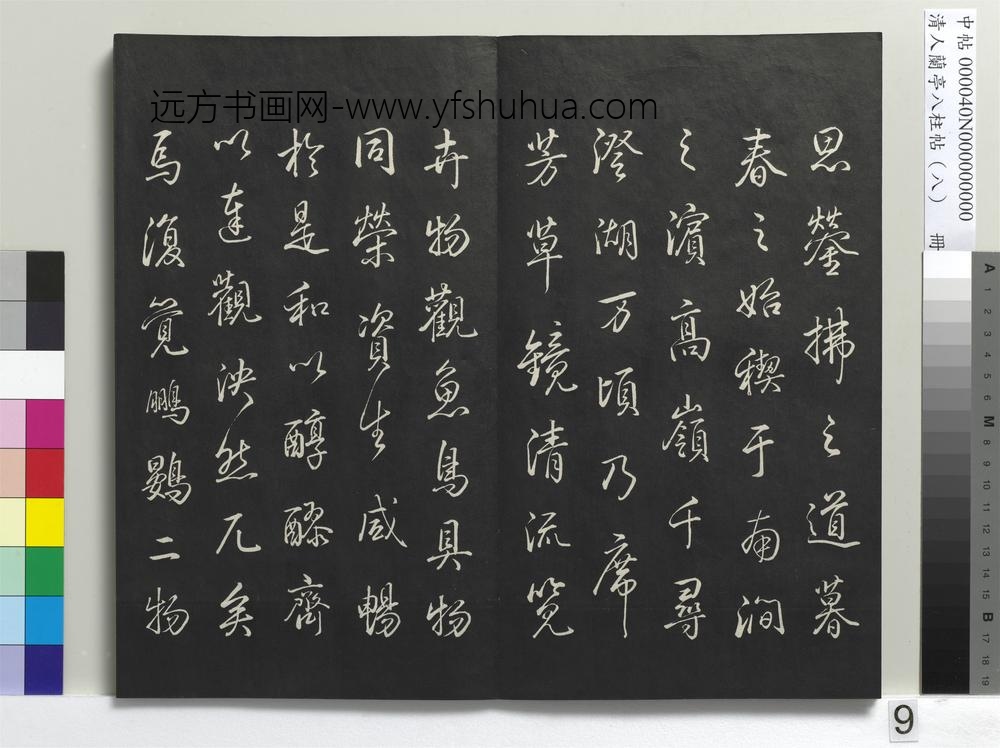 远方书画网-www.yfshuhua.com
中帖 000040N000000000
清人蘭亭八柱帖（八） 冊
思鎣拂之道暮
春之始禊于南澗
之濵高嶺千尋
澄湖万頃乃席
芳草鏡清流覽
卉物觀魚鳥具物
同榮資生咸暢
於是和以醇醪齊
以達觀泱然兀矣
焉復覺鵬鷃二物
A 1 2 3 4 5 6 M 8 9 10 11 12 13 14 15 B 17 18 19
9